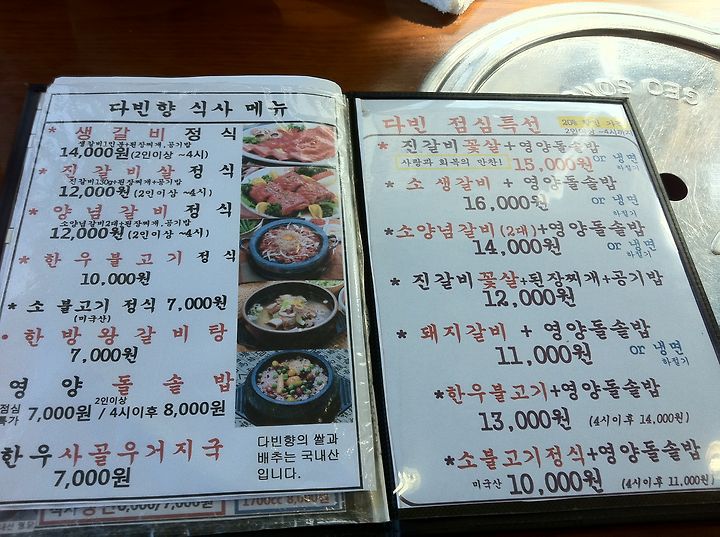 다빈향 식사 메뉴
* 생갈비 정식
생갈비1인분+된장찌개,공기밥
14,000원 (2인이상 ~4시)
* 진갈비살 정식
진갈비130g+된장찌개+공기밥
12,000원 (2인이상 ~4시)
* 양념갈비 정식
소양념갈비2대+된장찌개,공기밥
12,000원 (2인이상 ~4시)
* 한우불고기 정식
10,000원
* 소 불고기 정식 7,000원
(미국산)
• 한방왕갈비탕
7,000원
영양돌솥밥
점심특가 7,000원 2인이상 / 4시이후 8,000원
한우사골우거지국
7,000원
다빈향의 쌀과
배추는 국내산
입니다.
다빈 점심특선
2인이상~4시까지
* 진갈비꽃살+영양돌솥밥
사랑과 회복의 만찬! 15,000원 or 냉면
하절기
* 소 생갈비 + 영양돌솥밥
16,000원 or 냉면
하절기
*소양념갈비(2대)+영양돌솥밥
14,000원 or 냉면
하절기
* 진갈비꽃살+된장찌개+공기밥
12,000원
* 돼지갈비 + 영양돌솥밥
11,000원 or 냉면
하절기
*한우불고기+영양돌솥밥
13,000원 (4시이후 14,000원)
*소불고기정식+영양돌솥밥
미국산 10,000원 (4시이후 11,000원)
GEO SONG